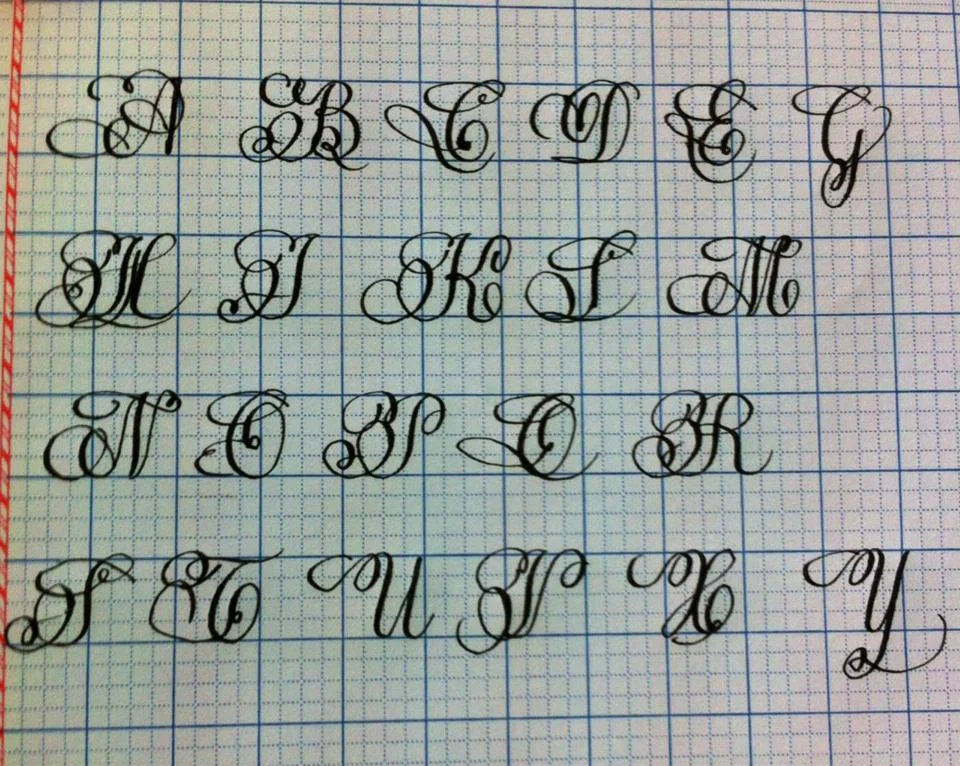 A B C D E G
H I K L M
N O P Q R
S T U V X Y